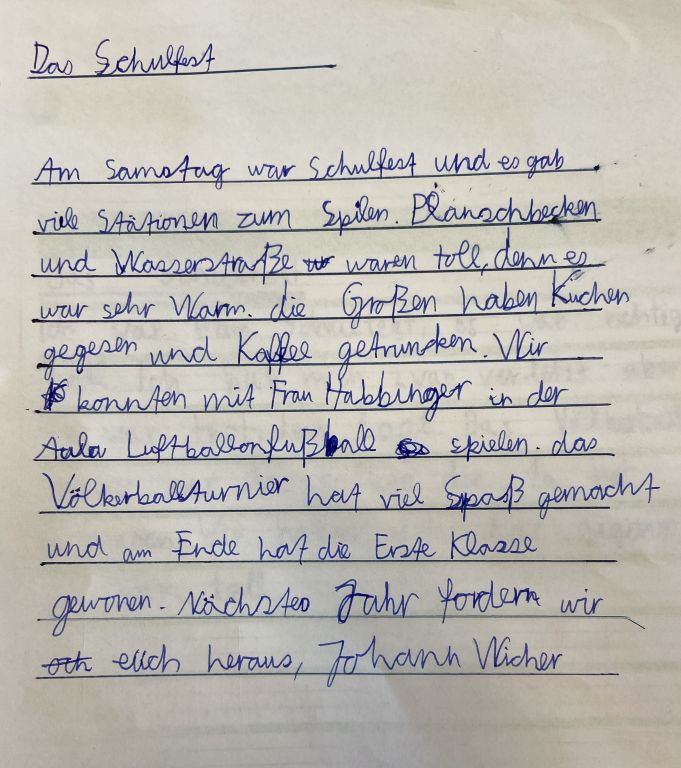 Das Schulfest
Am Samstag war Schulfest und es gab
viele Stätionen zum Spilen. Planschbecken
und Wasserstraße waren toll, denn es
war sehr Warm. die Großen haben Kuchen
gegesen und Kaffee getruncken. Wir
konnten mit Frau Habbinger in der
Aula Luftballonfußball spielen. das
Völkerballturnier hat viel Spaß gemacht
und am Ende hat die Erste Klasse
gewonen. Nächstes Jahr fordern wir
euch heraus, Johann Wicher